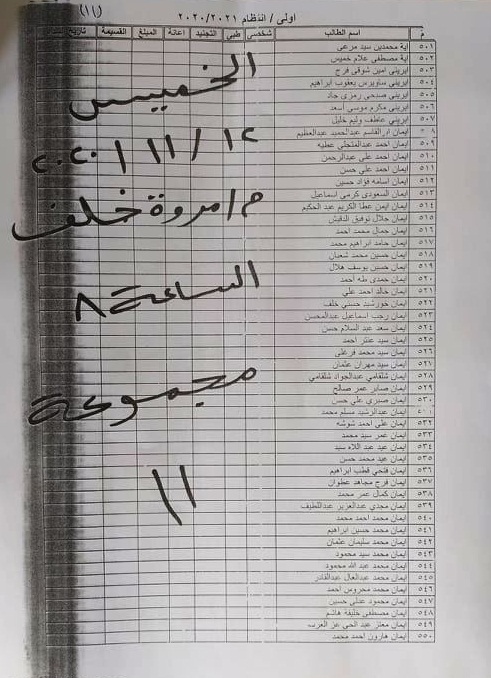 (١١)
اولى / انتظام ٢٠٢٠/٢٠٢١
م اسم الطالب شخصى طبى التجنيد اعانة المبلغ القسيمة تاريخ
٥٠١ اية محمدين سيد مرعى
٥٠٢ اية مصطفى علام خميس
٥٠٣ ايرينى امين شوقى فرج
٥٠٤ ايرينى ساويرس يعقوب ابراهيم
٥٠٥ ايرينى صبحى رمزى جاد
٥٠٦ ايرينى مكرم موسى أسعد
٥٠٧ ايرينى عاطف وليم خليل
الخميس
٥٠٨ ايمان ابوالقاسم عبدالحميد عبدالعظيم
٥٠٩ ايمان احمد عبدالمتجلى عطيه
٥١٠ ايمان احمد على عبدالرحمن
١٢ / ١١ / ٢٠٢٠
٥١١ ايمان احمد على حسن
٥١٢ ايمان اسامه فؤاد حسين
٥١٣ ايمان السعودى كرمى اسماعيل
٥١٤ ايمان ايمن عطا الكريم عبد الحكيم
م/ مروة خلف
٥١٥ ايمان جلال توفيق الدقيش
٥١٦ ايمان جمال محمد احمد
٥١٧ ايمان حامد ابراهيم محمد
٥١٨ ايمان حسين محمد شعبان
٥١٩ ايمان حسين يوسف هلال
٥٢٠ ايمان حمدى طه أحمد
الساعة ٨
٥٢١ ايمان خالد احمد على
٥٢٢ ايمان خورشيد حسنى خلف
٥٢٣ ايمان رجب اسماعيل عبدالمحسن
٥٢٤ ايمان سعد عبد السلام حسن
٥٢٥ ايمان سيد عنتر احمد
٥٢٦ ايمان سيد محمد فرغلى
٥٢٧ ايمان سيد مهران عثمان
٥٢٨ ايمان شلقامى عبدالجواد شلقامى
٥٢٩ ايمان صابر عمر صالح
مجموعة
٥٣٠ ايمان صبرى على حسن
٥٣١ ايمان عبدالرشيد مسلم محمد
٥٣٢ ايمان على احمد شوشه
٥٣٣ ايمان عمر سيد محمد
٥٣٤ ايمان عيد عبد اللاه سيد
٥٣٥ ايمان عيد محمد حسن
٥٣٦ ايمان فتحى قطب ابراهيم
١١
٥٣٧ ايمان فرج مجاهد عطوان
٥٣٨ ايمان كمال عمر محمد
٥٣٩ ايمان مجدى عبدالعزيز عبداللطيف
٥٤٠ ايمان محمد احمد محمد
٥٤١ ايمان محمد حسين ابراهيم
٥٤٢ ايمان محمد سليمان عثمان
٥٤٣ ايمان محمد سيد محمود
٥٤٤ ايمان محمد عبد الله محمود
٥٤٥ ايمان محمد عبدالعال عبدالقادر
٥٤٦ ايمان محمد محروس احمد
٥٤٧ ايمان محمود عدلى حسين
٥٤٨ ايمان مصطفى خليفة هاشم
٥٤٩ ايمان معتز عبد الحى عز العرب
٥٥٠ ايمان هارون احمد محمد